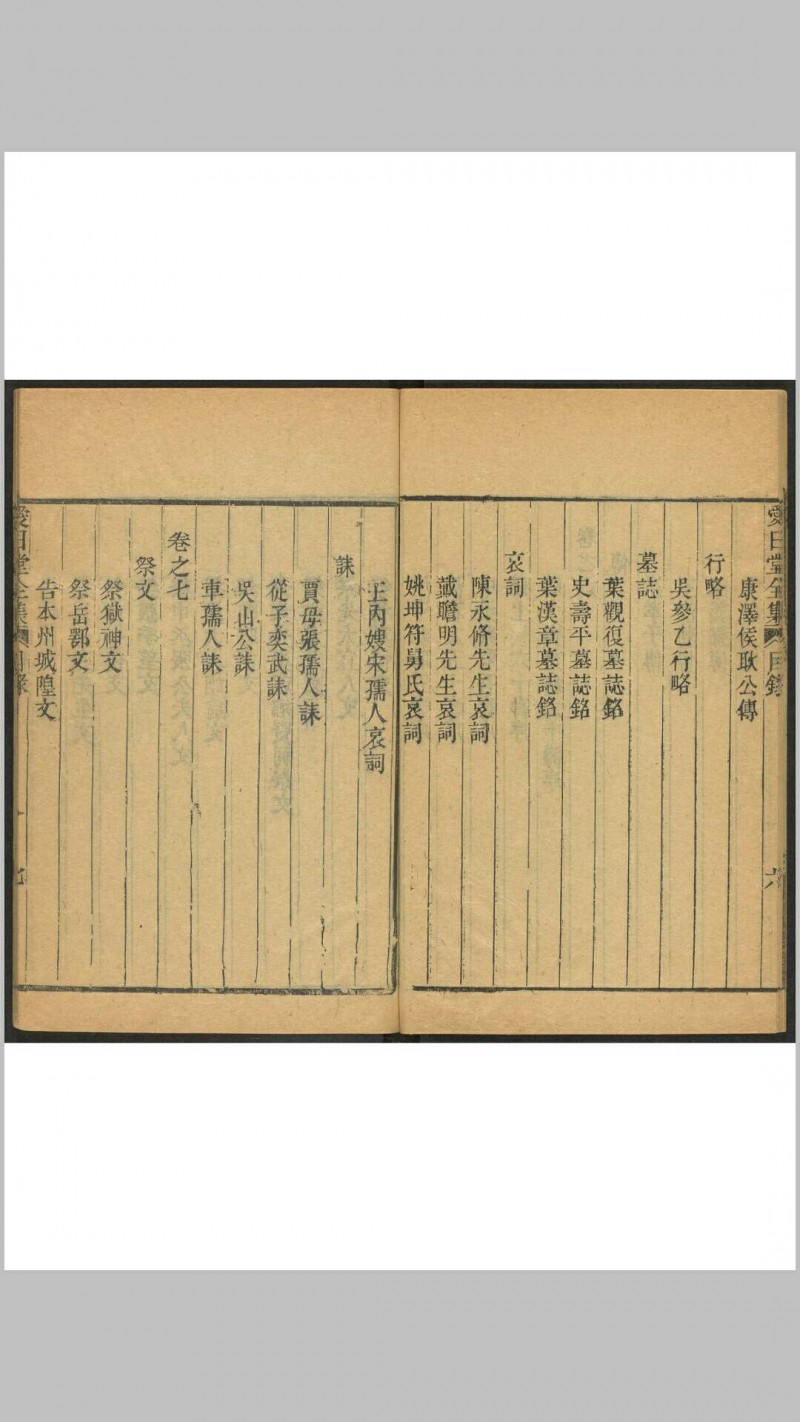 愛日堂全集 目錄 六
康澤侯耿公傳
行略
吳參乙行略
墓誌
葉觀復墓誌銘
史壽平墓誌銘
葉漢章墓誌銘
哀詞
陳永脩先生哀詞
戴瞻明先生哀詞
姚坤符舅氏哀詞
王內嫂宋孺人哀詞
誄
賈母張孺人誄
從子奕武誄
吳山公誄
車孺人誄
卷之七
祭文
祭獄神文
祭岳鄂文
告本州城隍文
愛日堂全集 目錄 七